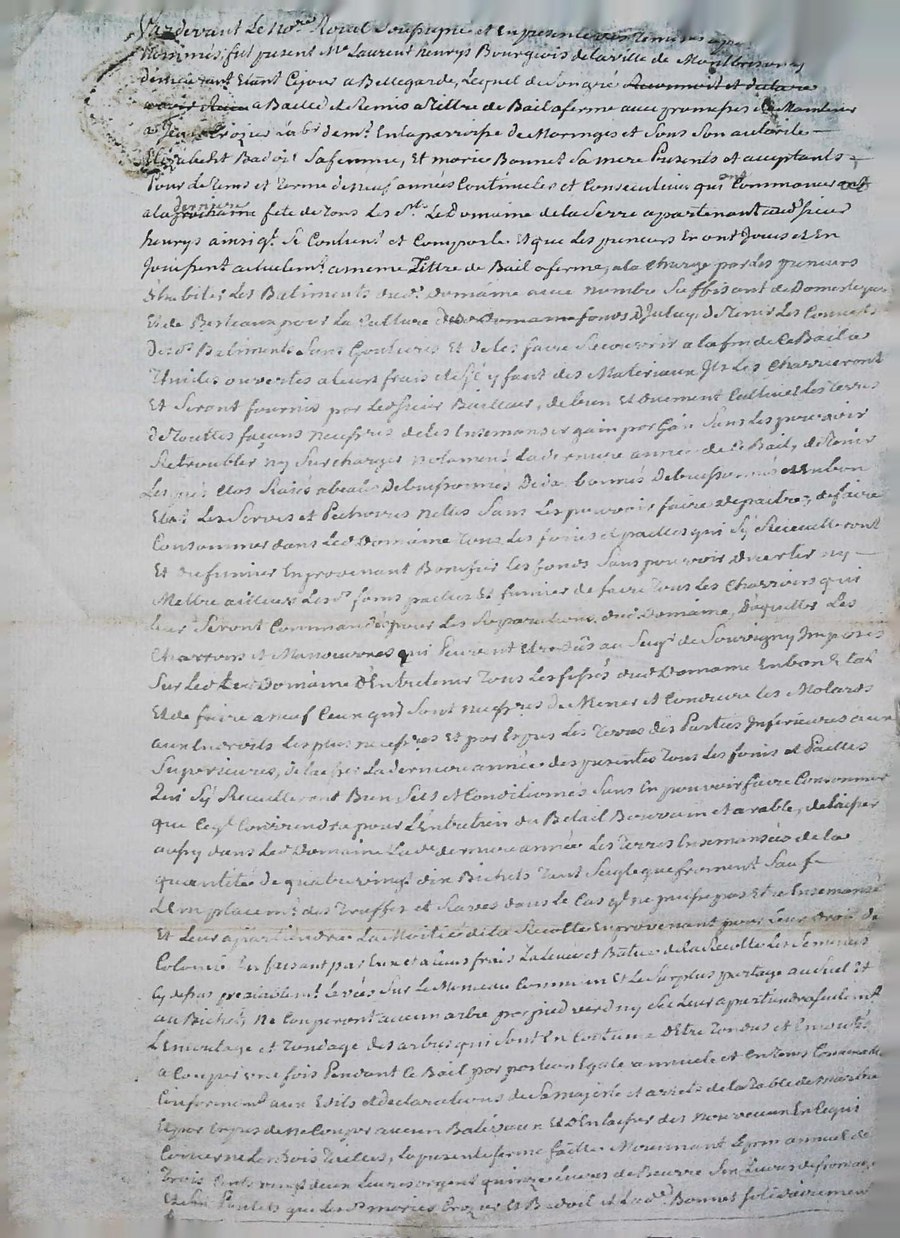 Pardevant Le no.re Royal Soussigné et En presence des temoins apres
nommés, fut present M.e Laurent henrys Bourgeois de la ville de Montbrison y
demeurant Etant Ce jour a Bellegarde, Lequel de Son gré
a Baillé et Remis a Tittre de Bail a ferme avec promesse de Maintenir
a Crozier Lab.r dem.t En la parroisse de Maringes et Sous Son autorité
Elizabeth Badoil Sa femme, Et marie Bonnet Sa mere Presents et acceptants
Pour le Tems et Terme de neuf années Continuelles et Consecutives qui ont Commancé
a la derniere fete de Tous Les S.ts Le Domaine de la Serre apartenant aud sieur
henrys ainsi q.l Se Contient et Comporte Et que Les preneurs En ont Jouis et En
Jouissent actuelem.t a meme Tittre de Bail a ferme, a la Charge par Les preneurs
d'habiter Les Batiments dud.t Domaine avec nombre Suffisant de Domestiques
Et de Bestiaux pour La Culture des fonds D'Iceluy, de Tenir Les Couverts
Desd.s Batiments Sans Goutieres Et de les faire Recouvrir a la fin de Ce Bail a
Thuiles ouvertes a leurs frais et S'il y faut des Materiaux Ils Les Charrieront
Et Seront fournis par Led sieur Bailleur, de bien Et Duement Cultiver Les terres
de Touttes façons necess.res de les Ensemanser grain par Sans Les pouvoir
Retroubler ny Surcharger notament La derniere année de Ce Bail, de Tenir
Les prés Clos Rasés abealés Debuissonnés et En bon
Etat Les Serves et Pecheries nettes Sans Les pouvoir faire Depaitre, de faire
Consommer dans Led Domaine Tous Les foins et pailles qui S'y Receuilleront
Et du fumier En provenant Bonifier Les fonds Sans pouvoir Divertir ny
Mettre ailleurs Lesd.s foins pailles Et fumier de faire Tous Les Charrois qui
leur Seront Commandés pour Les Reparations dud Domaine, D'aquitter Les
Charrois et Manoeuvres qui Peuvent Etre dûs au Seig.r de Souvigny Imposés
Sur Led Domaine D'Entretenir Tous Les fossés dud Domaine En bon Etat
Et de faire a neuf Ceux qui Sont necess.res De Mener et Conduire Les Molards
aux Endroits Les plus necess.res Et par Les Terres des Parties Inferieures aux
Superieures, de laisser La derniere année des presentes Tous Les foins et Pailles
Qui S'y Receuilleront Bien Sets et Conditionnés Sans En pouvoir faire Consommer
que Ce q.l Conviendra pour L'Entretien du Betail Bouvain et arable, de laisser
aussy dans Led Domaine Lad.e derniere année Les Terres Ensemansées de la
quantité de quatre vingt dix Bichets Tant Seigle que froment Sauf
L'Emplacem.t des Truffes et Raves dans le Cas q.l ne puisse pas Etre Ensemansé
Et Leur apartiendra La Moitié de la Recolte En provenant pour Leur Droit de
Colonie En faisant par Eux et a leurs frais La Levée et Bature de la Recolte Les Semences
prealablem.t Levées Sur Le Monceau Commun Et Le Surplus partagé au Suel Et
au Bichet, Ne Couperont aucun arbre par pied verd ny Sec Leur apartiendra Seulem.t
L'Emoudage et Tondage des arbres qui Sont En Coutume D'Etre Tondus et Emoudés
a Couper une fois Pendant Ce Bail par portion Egale annuele et En Tems Convenable
Conformem.t aux Edits et declarations de Sa majesté et arrets de la Table de marbre
Et par de ne Couper aucun Balivaux Et D'En laisser des Nouveaux En Ce qui
Concerne Les Bois Taillés, La presente ferme faitte Moyennant Le prix annuel de
Trois Cents vingt deux Livres argent quinze Livres de Beurre Six Livres de fromage
Et Poulets que lesd.s mariés Crozier Et Badoil et Lad.e Bonnet Solidairement